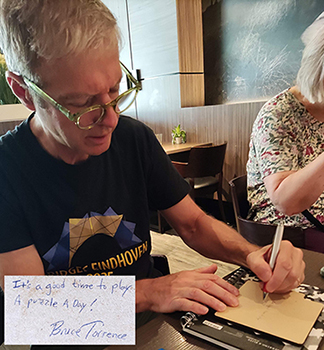 BRIDGES EINDHOVEN
2025
It's a good time to play
A puzzle A Day!
Bruce Torrence